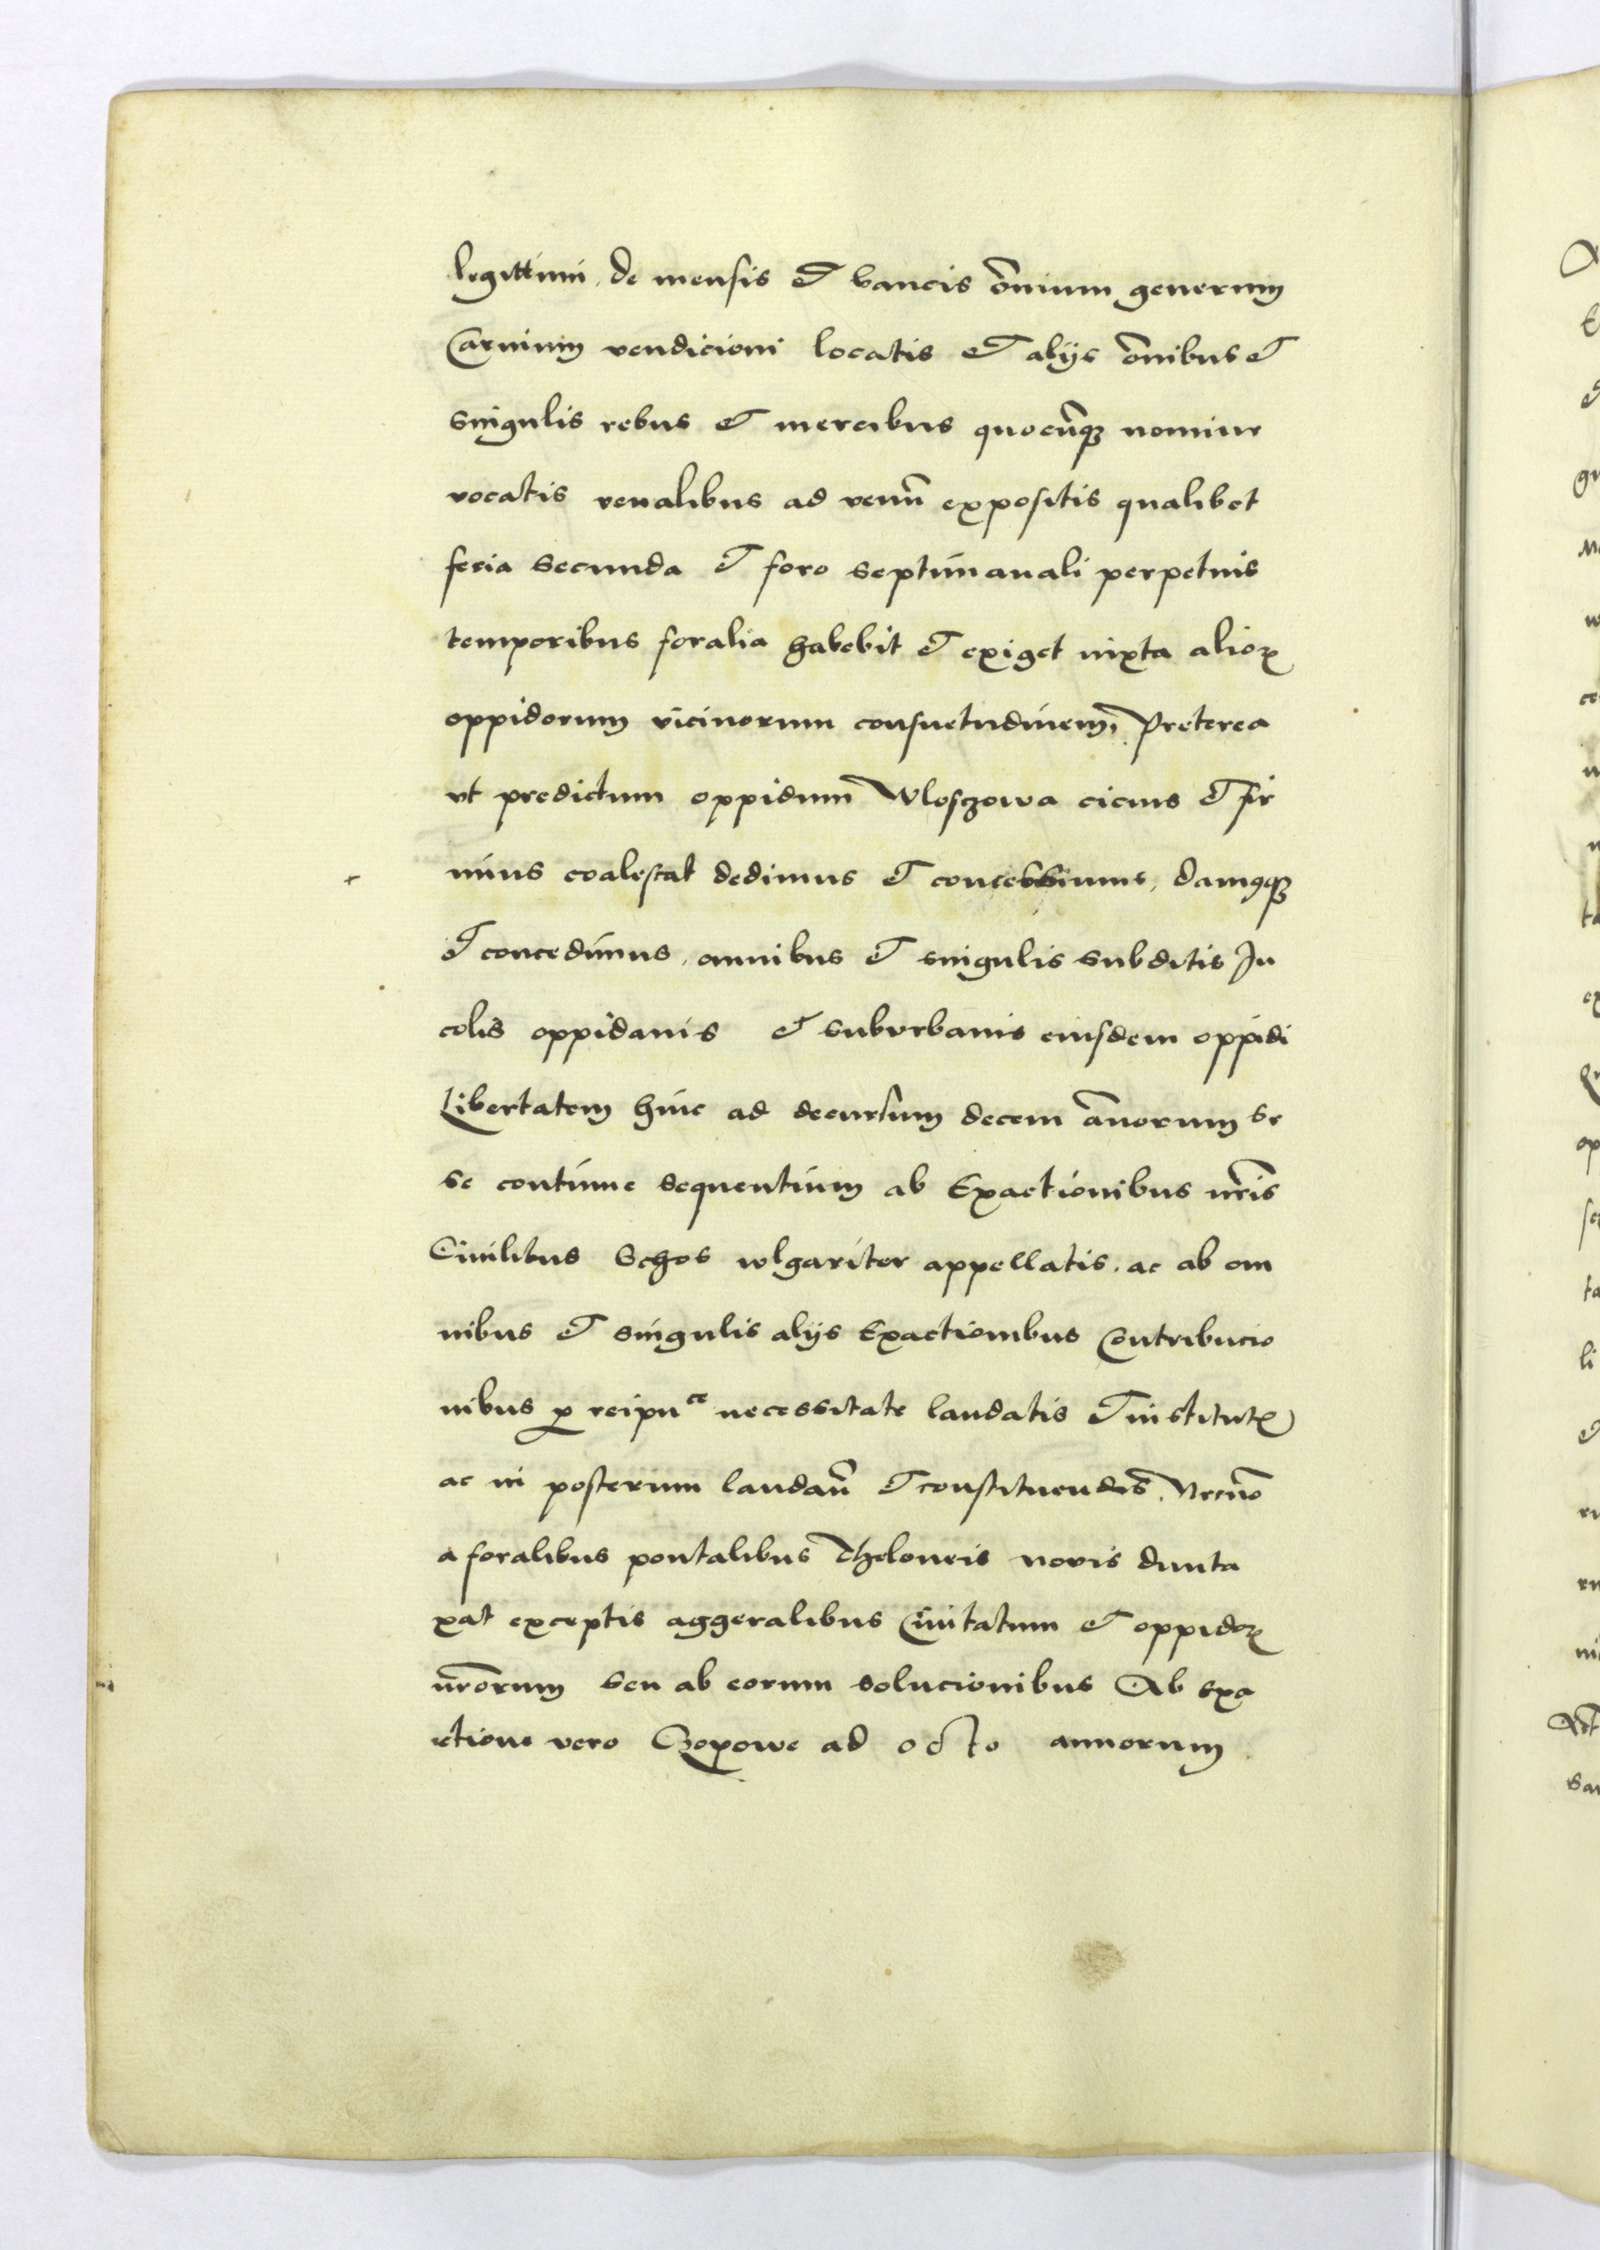 legittimi, de mensis et bancis o͞mnium generum
Carnium vendicioni locatis et alijs o͞mnibus et
singulis rebus et mercibus quocu͞nqꝫ nomine
vocatis venalibus ad venu͞ expositis qualibet
feria secunda et foro septimanali perpetuis
temporibus foralia habebit et exiget iuxta alioꝝ
oppidorum vicinorum consuetudinem, Preterea
vt predictum oppidum Wlosczowa cicius et fir
mius coalescat dedimus et concessimus, damꝰqꝫ
et concedimus, omnibus et singulis subditis In
colis oppidanis et suburbanis eiusdem oppidi
Libertatem hinc ad decursum decem a͞nnorum se
se continue sequentium ab Exactionibus nr͞is
Ciuilibus Schos wlgariter appellatis, ac ab om
nibus et singulis alijs Exactionibus Contribucio
nibus ꝓ reipuce necessitate laudatis et institutꝭ
ac in posterum laudan͞ et constituendis, Necno͞
a foralibus pontalibus Theloneis novis dunta
xat exceptis aggeralibus Ciuitatum et oppidoꝝ
nr͞orum seu ab eorum solucionibus Ab exa
ctione vero Czopowe ad octo annorum